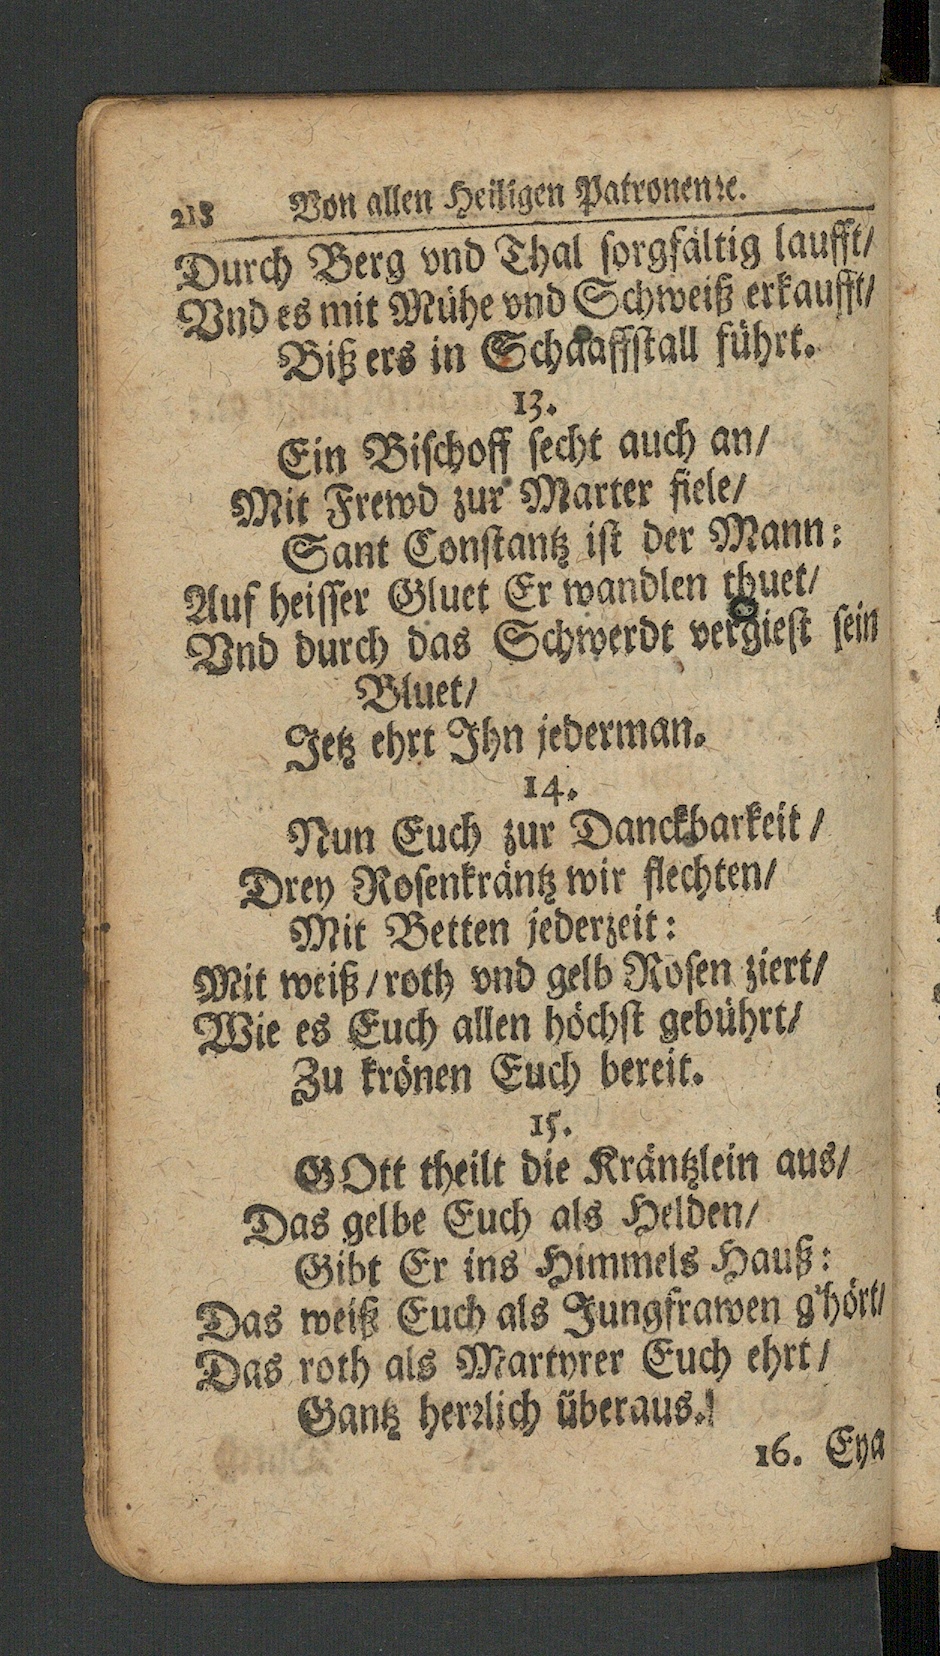 218 Von allen Heiligen Patronen ꝛc.
Durch Berg vnd Thal sorgfältig laufft/
Vnd es mit Mühe vnd Schweiß erkaufft/
Biß ers in Schaaffstall führt.
13.
Ein Bischoff secht auch an/
Mit Frewd zur Marter fiele/
Sant Constantz ist der Mann:
Auf heisser Gluet Er wandlen thuet/
Vnd durch das Schwerdt vergiest sein
Bluet/
Jetz ehrt Jhn jederman.
14.
Nun Euch zur Danckbarkeit/
Drey Rosenkräntz wir flechten/
Mit Betten jederzeit:
Mit weiß/ roth vnd gelb Rosen ziert/
Wie es Euch allen höchst gebührt/
Zu krönen Euch bereit.
15.
GOtt theilt die Kräntzlein aus/
Das gelbe Euch als Helden/
Gibt Er ins Himmels Hauß:
Das weiß Euch als Jungfrawen g'hört/
Das roth als Martyrer Euch ehrt/
Gantz herꝛlich überaus.
16. Eya